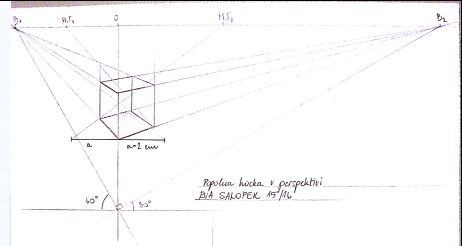 B₁ M.T₁ O M.T₂ B₂
a a=2 cm
Popolna kocka v perspektivi
BIA SALOPEK 15/16
60° 30°